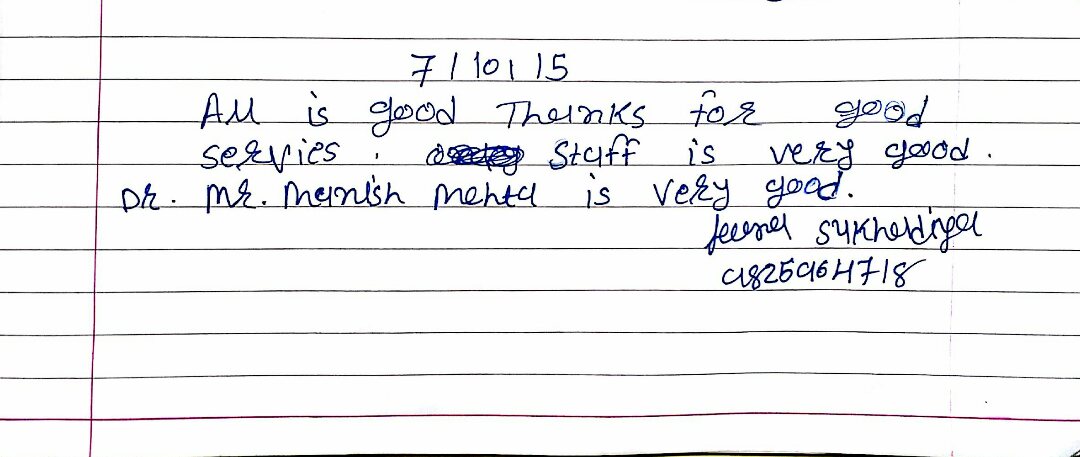 7/10/15
All is good Thanks for good
servies. Staff is very good.
Dr. Mr. Manish Mehta is very good.
Sukhadiya
9825964718